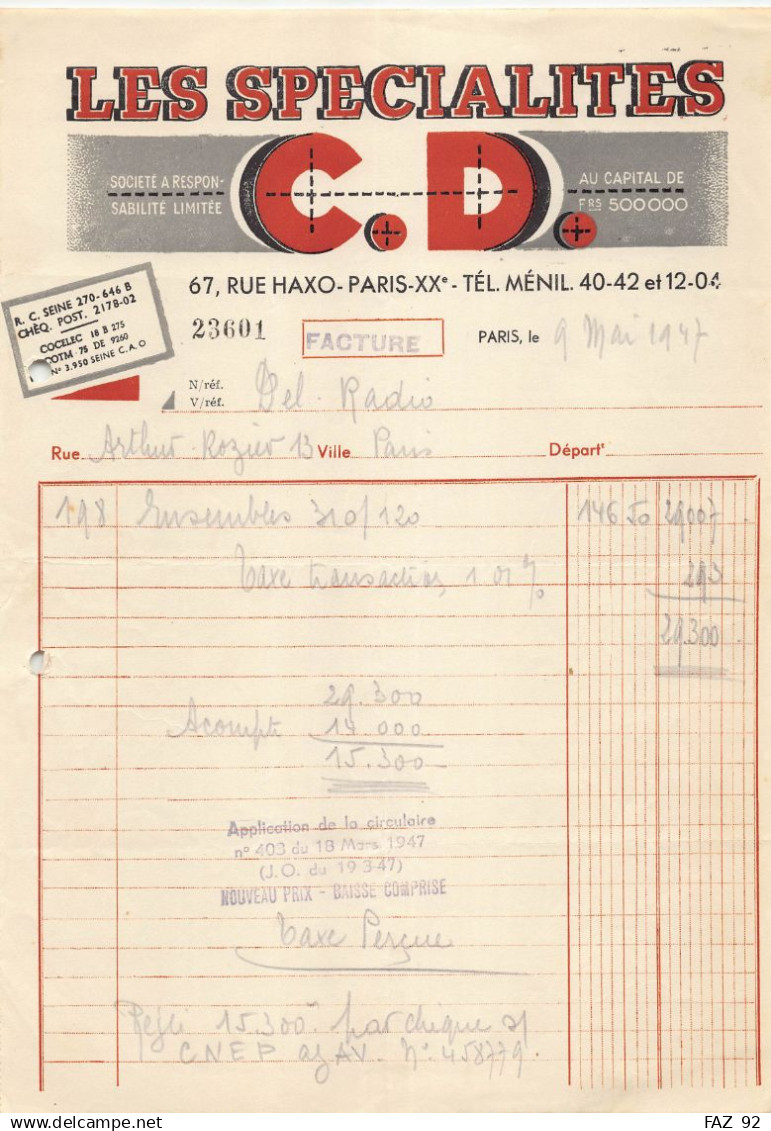 LES SPECIALITES
SOCIETÉ A RESPON-
SABILITÉ LIMITÉE
C.D.
AU CAPITAL DE
FRS 500000
67, RUE HAXO-PARIS-XXe-TÉL. MÉNIL. 40-42 et 12-04
R. C. SEINE 270-646 B
CHÈQ. POST. 2178-02
COCELEC 18 B 275
COTM 75 DE 9260
Nº 3.950 SEINE C.A.O
23601
FACTURE
PARIS, le 9 Mai 1947
N/réf.
V/réf.
Del Radio
Rue Arthur Rozier 13 Ville Paris Départt
198 Ensembles 310/120 146 50 29007
Taxe transaction 1 01 % 293
29.300
29.300
Acompte 14 000
15.300
Application de la circulaire
nº 403 du 18 Mars 1947
(J.O. du 19-3-47)
NOUVEAU PRIX - BAISSE COMPRISE
Taxe Perçue
15.300 par chèque s/
CNEP ag AV. Nº 458779.
FAZ 92